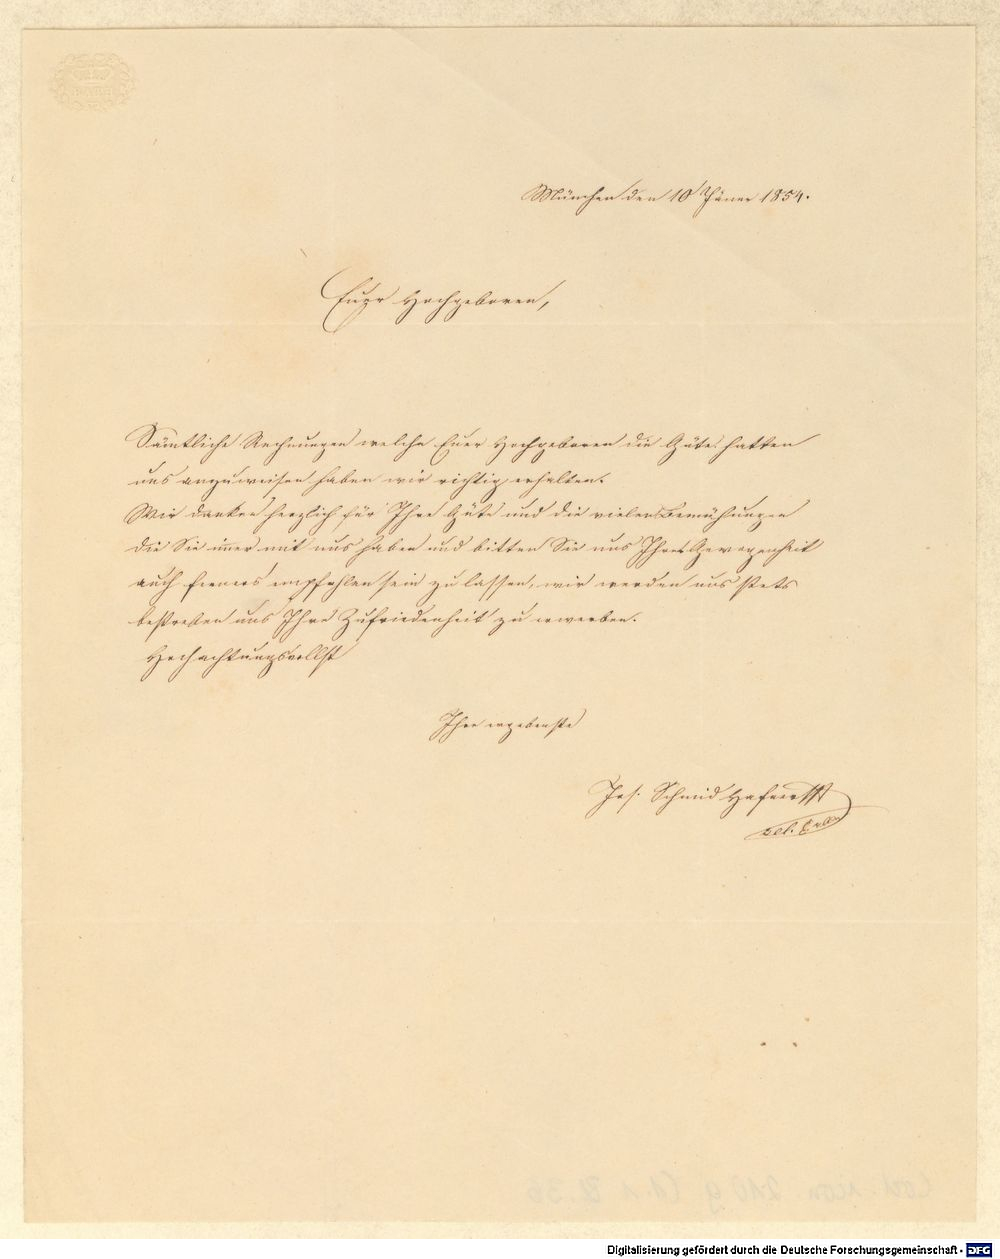 BATH
München den 10 Jäner 1854.
Euer Hochgeboren,
Sämtliche Rechnungen welche Euer Hochgeboren die Güte hatten
uns anzuweisen haben wir richtig erhalten.
Wir danken herzlich für Ihre Güte und die vielen Bemühungen
die Sie imer mit uns haben und bitten Sie uns Ihrer Gewogenheit
auch ferners empfohlen sein zu lassen, wir werden uns stets
bestreben uns Ihre Zufriedenheit zu erwerben.
Hochachtungsvollst
Ihre ergebenste
Jos. Schmid Hafners
sel. Erben
Cod. icon 210 g (1.1 Bl. 36
Digitalisierung gefördert durch die Deutsche Forschungsgemeinschaft - DFG